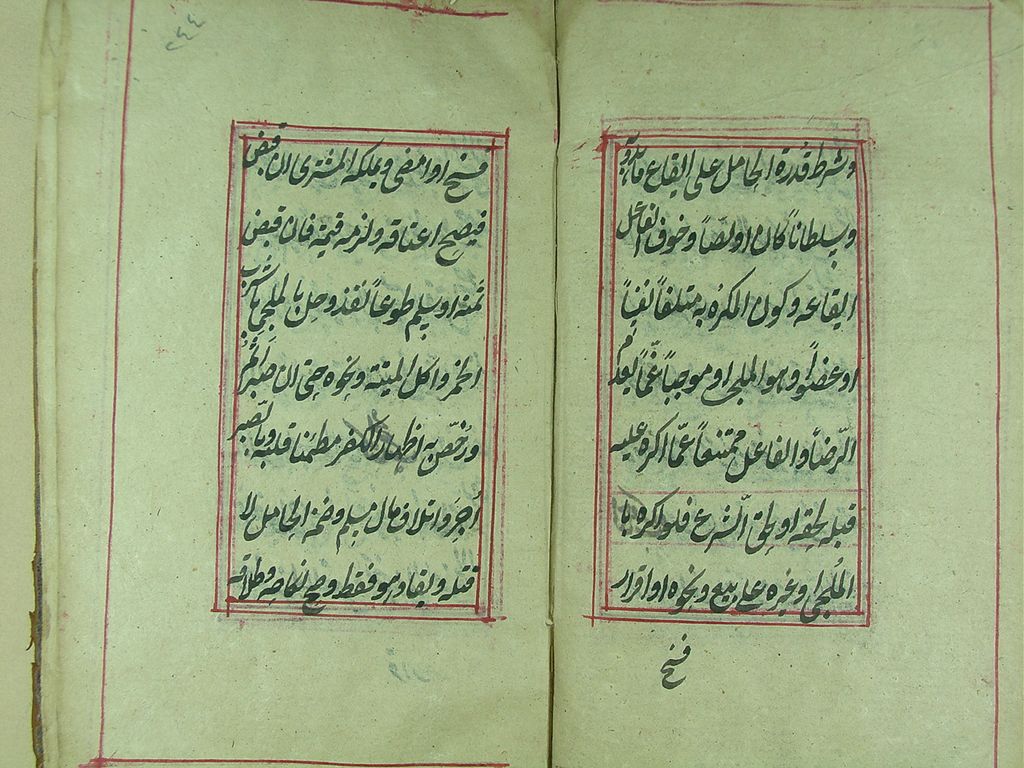 وشرط قدرة الحامل على ايقاع ما هدد به
سلطانا كان او لصا وخوف الفاعل
ايقاعه وكون المكره به متلفا نفسا
او عضوا وهو الملجئ او موجبا غما يعدم
الرضا والفاعل ممتنعا عما اكره عليه
قبله لحقه او لحق الشرع فلو اكره با
الملجئ او غيره على بيع ونحوه او اقرار
فسخ
٢٤٤
فسخ او امضى ويملكه المشترى ان قبض
فيصح اعتاقه ولزمه قيمته فان قبض
ثمنه او سلم طوعا نفذ وحل بالملجئ شرب
الخمر واكل الميتة ونحوه حتى ان صبر اثم
ورخص به اظهار الكفر مطمئنا قلبه وبالصبر
اجر واتلاف مال مسلم وضمن الحامل لا
قتله ويقاد هو فقط وصح نكاحه وطلاقه